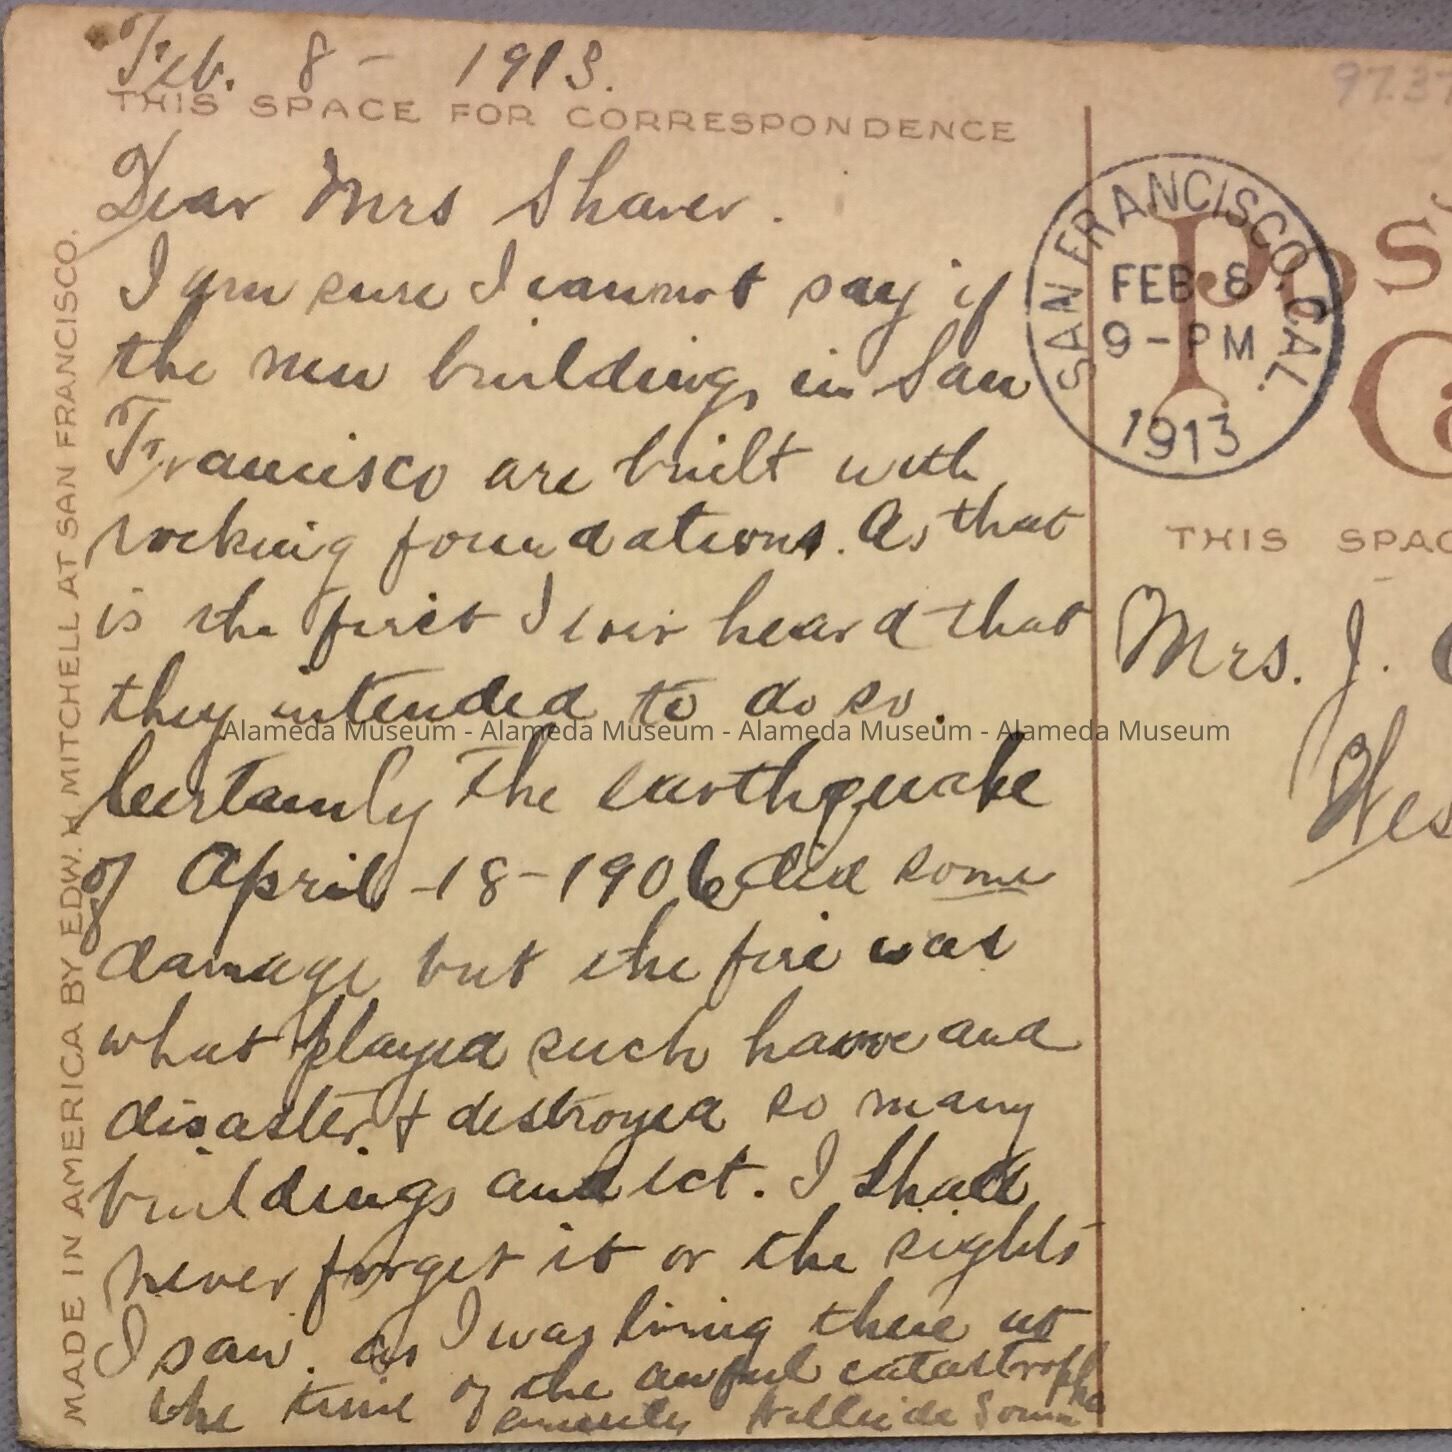 Feb. 8 - 1913.
THIS SPACE FOR CORRESPONDENCE
Dear Mrs Shaver.
I am sure I cannot say if
the new buildings in San
Francisco are built with
rocking foundations. As that
is the first I ever heard that
they intended to do so.
Certainly the earthquake
of April -18-1906 did some
damage but the fire was
what played such havoc and
disaster & destroyed so many
buildings and ect. I shall
never forget it or the sights
I saw. as I was living there at
the time of the awful catastrophe
MADE IN AMERICA BY EDW. H. MITCHELL AT SAN FRANCISCO.
SAN FRANCISCO, CAL.
FEB 8
9-PM
1913
Pos
Ca
THIS SPAC
Mrs. J.
Wes
Alameda Museum - Alameda Museum - Alameda Museum - Alameda Museum